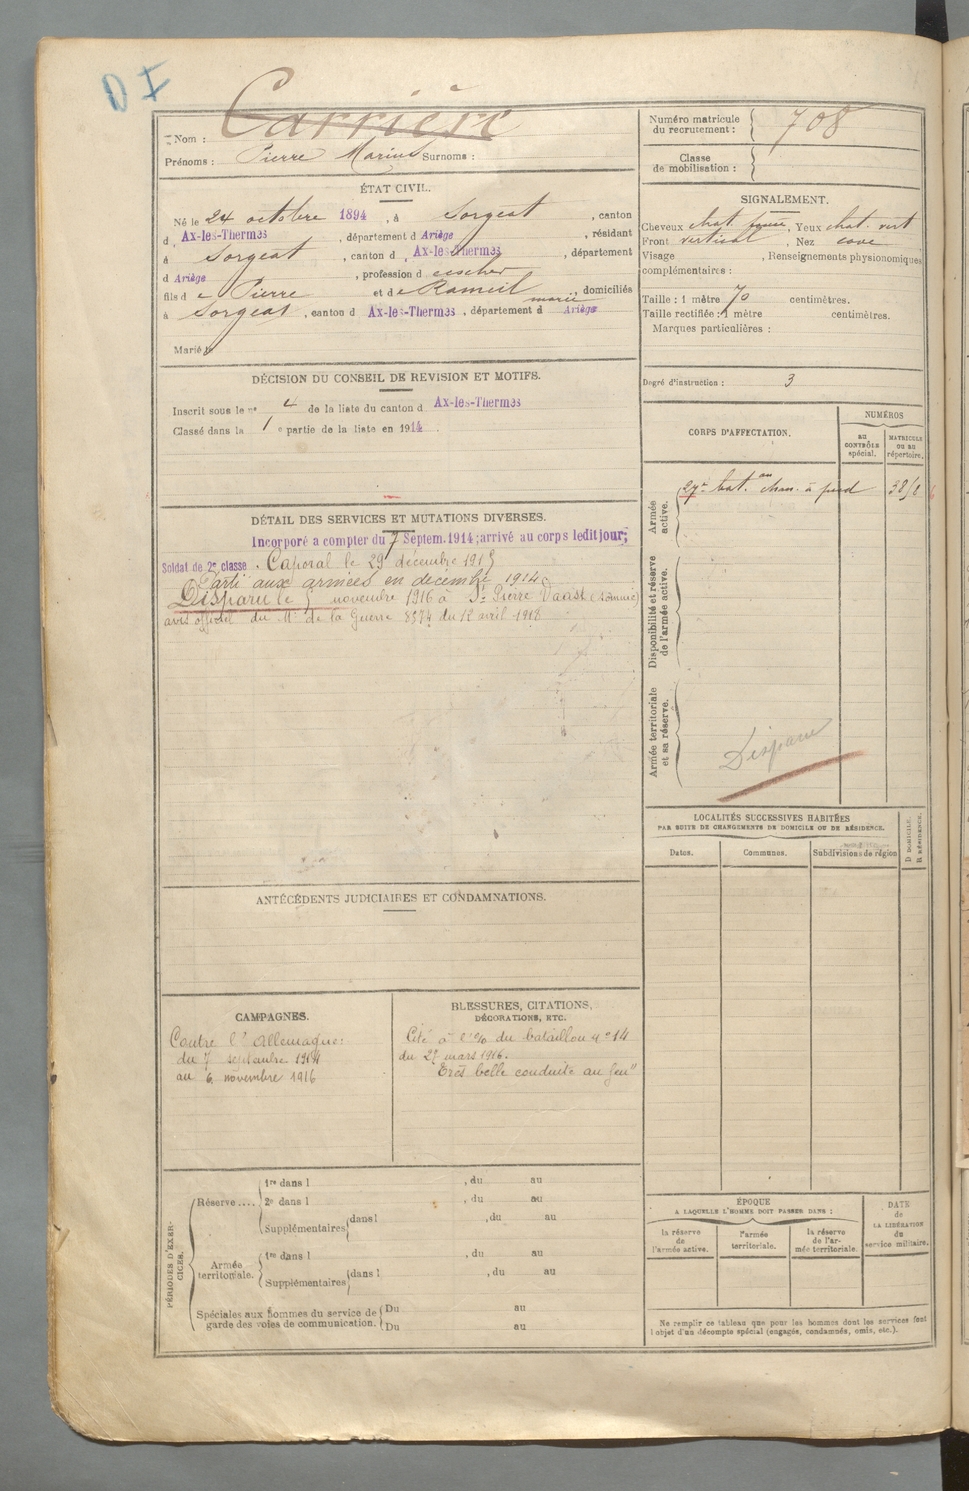 D I
Nom : Carrière
Prénoms : Pierre Marius Surnoms :
Numéro matricule
du recrutement : 708
Classe
de mobilisation :
ÉTAT CIVIL.
Né le 24 octobre 1894, à Sorgeat, canton
d Ax-les-Thermes, département d Ariège, résidant
à Sorgeat, canton d Ax-les-Thermes, département
d Ariège, profession d
fils d e Pierre et d e Rameil marie, domiciliés
à Sorgeat, canton d Ax-les-Thermes, département d Ariège
Marié le
SIGNALEMENT.
Cheveux chat. foncé, Yeux chat. vert
Front vertical, Nez cave
Visage , Renseignements physionomiques
complémentaires :
Taille : 1 mètre 70 centimètres.
Taille rectifiée : 1 mètre centimètres.
Marques particulières :
Degré d'instruction : 3
DÉCISION DU CONSEIL DE REVISION ET MOTIFS.
Inscrit sous le nº 4 de la liste du canton d Ax-les-Thermes
Classé dans la 1 e partie de la liste en 1914.
CORPS D'AFFECTATION.
NUMÉROS
au
CONTRÔLE
spécial.
MATRICULE
ou au
répertoire.
Armée
active.
27e bat.on chas. à pied
Disponibilité et réserve
de l'armée active.
Armée territoriale
et sa réserve.
Disparu
DÉTAIL DES SERVICES ET MUTATIONS DIVERSES.
Incorporé a compter du 7 Septem. 1914; arrivé au corps ledit jour;
Soldat de 2e classe. Caporal le 29 décembre 1915
Parti aux armées en décembre 1914
Disparu le 5 novembre 1916 à St Pierre Vaast (Somme)
avis officiel du Mre de la Guerre 8574 du 12 avril 1918
LOCALITÉS SUCCESSIVES HABITÉES
PAR SUITE DE CHANGEMENTS DE DOMICILE OU DE RÉSIDENCE.
Dates.
Communes.
Subdivisions de région
D DOMICILE.
R RÉSIDENCE.
ANTÉCÉDENTS JUDICIAIRES ET CONDAMNATIONS.
CAMPAGNES.
Contre l'Allemagne:
du 7 septembre 1914
au 6 novembre 1916
BLESSURES, CITATIONS,
DÉCORATIONS, ETC.
Cité à l'o/o du bataillon nº 14
du 27 mars 1916.
"Très belle conduite au feu"
PÉRIODES D'EXER-
CICES.
Réserve ....
1re dans l , du au
2e dans l , du au
Supplémentaires dans l , du au
Armée
territoriale.
1re dans l , du au
Supplémentaires dans l , du au
Spéciales aux hommes du service de
garde des voies de communication.
Du au
Du au
ÉPOQUE
A LAQUELLE L'HOMME DOIT PASSER DANS :
la réserve
de
l'armée active.
l'armée
territoriale.
la réserve
de l'ar-
mée territoriale.
DATE
de
LA LIBÉRATION
du
service militaire.
Ne remplir ce tableau que pour les hommes dont les services font
l'objet d'un décompte spécial (engagés, condamnés, omis, etc.).